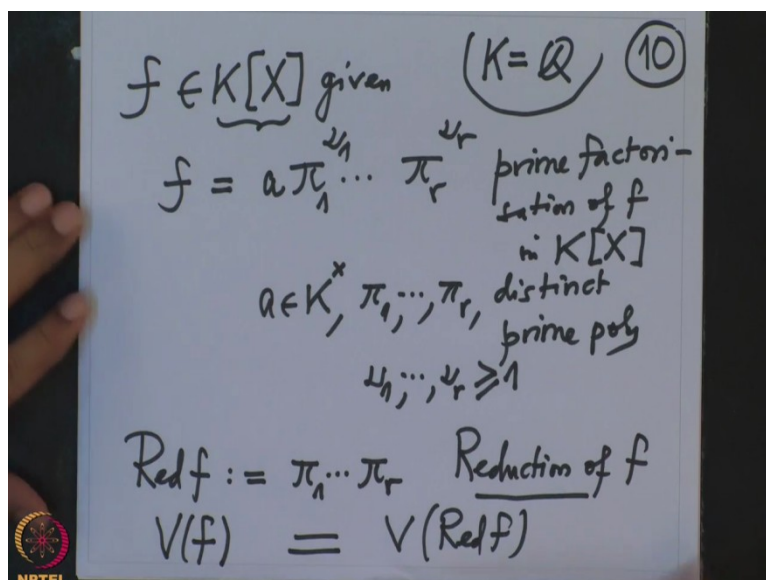 f ∈ K[X] given (K = ℚ) 10
f = a π₁^ν₁ ⋯ π_r^ν_r prime factori-
sation of f
in K[X]
a ∈ K^×, π₁, ⋯, π_r, distinct
prime poly
ν₁, ⋯, ν_r ⩾ 1
Red f := π₁ ⋯ π_r Reduction of f
V(f) = V(Red f)
NPTEL